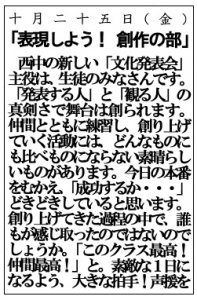 十月二十五日（金）
「表現しよう！ 創作の部」
西中の新しい「文化発表会」
主役は、生徒のみなさんです。
「発表する人」と「観る人」の
真剣さで舞台は創られます。
仲間とともに練習し、創り上げ
ていく活動には、どんなものに
も比べものにならない素晴らし
いものがあります。今日の本番
をむかえ、「成功するか・・・」
どきどきしていると思います。
創り上げてきた過程の中で、誰
もが感じ取ったのではないので
しょうか。「このクラス最高！
仲間最高！」と。素敵な１日に
なるよう、大きな拍手！声援を